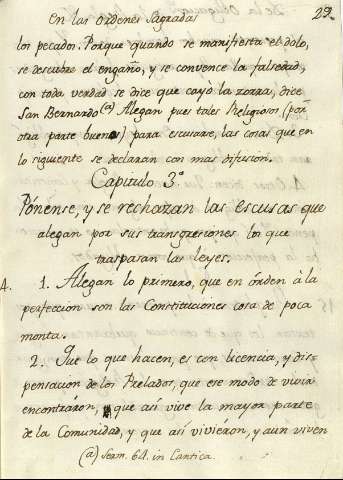 En las Ordenes Sagradas
29.
los pecados. Porque quando se manifiesta el dolo,
se descubre el engaño, y se convence la falsedad,
con toda verdad se dice que cayó la zorra, dice
San Bernardo (a) Alegan pues tales Religiosos (por
otra parte buenos) para escusarse, las cosas que en
lo siguiente se declaran con mas difusion.
Capitulo 3º
Pónense, y se rechazan las escusas que
alegan por sus transgresiones los que
traspasan las leyes.
4. 1. Alegan lo primero, que en órden à la
perfección son las Constituciones cosa de poca
monta.
2. Que lo que hacen, es con licencia, y dis-
pensacion de los Prelados, que ese modo de vivir
encontráron, que así vive la mayor parte
de la Comunidad, y que así viviéron, y aun viven
(a) Serm. 64. in Cantica.